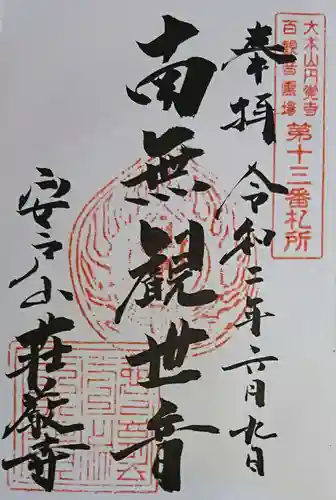 大本山円覚寺
百観音霊場 第十三番札所
奉拝 令和二年六月九日
南無観世音
安戸山 荘厳寺